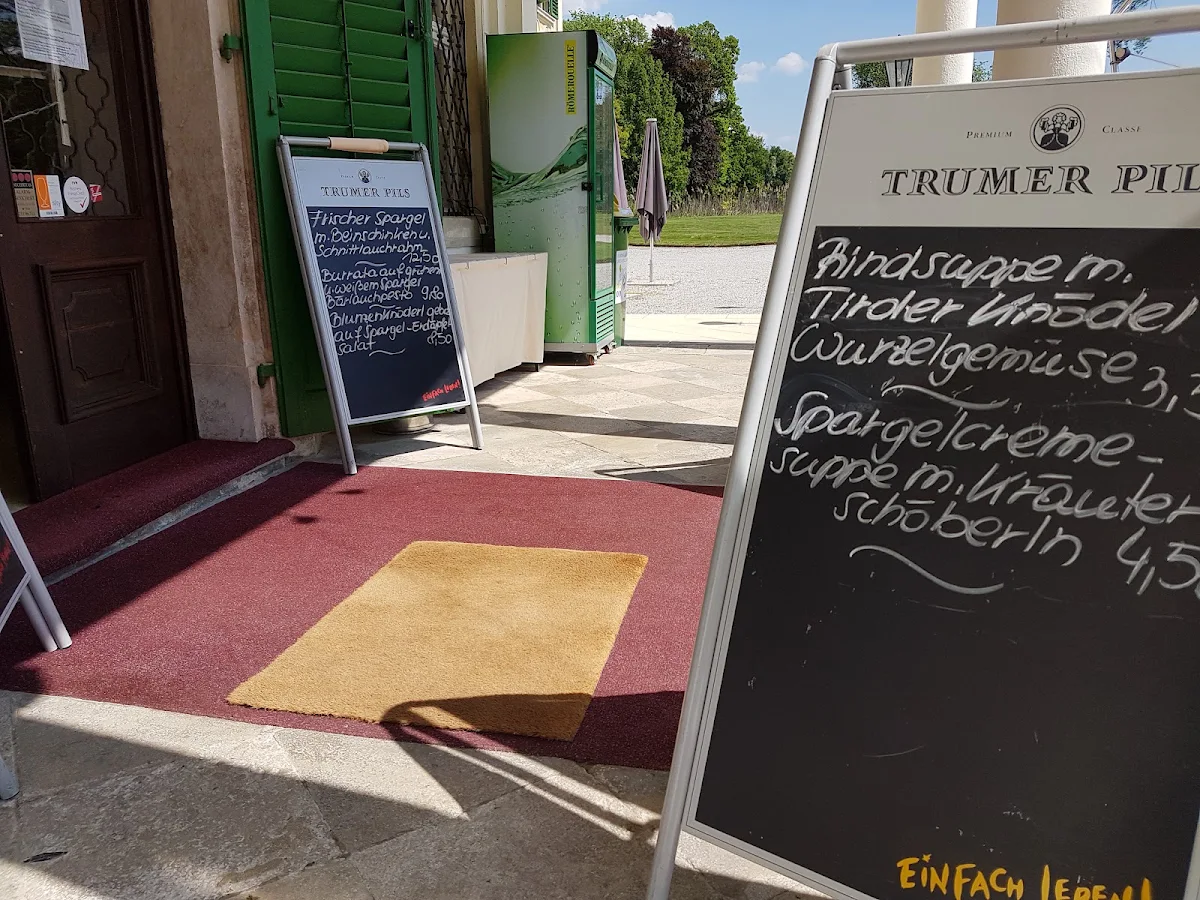 TRUMER PILS
Frischer Spargel
m. Beinschinken u.
Schnittlauchrahm
12,50
Burrata auf grünem
u. weißem Spargel
Bärlauchpesto 9,80
Blumenknöderl geba
auf Spargel-Erdäpfel
salat 8,50
EINFACH LEBEN!
RÖMERQUELLE
PREMIUM CLASSE
TRUMER PIL
Rindsuppe m.
Tiroler Knödel
Wurzelgemüse 3,
Spargelcreme-
suppe m. Kräuter
schöberln 4,5
EINFACH LEBEN!